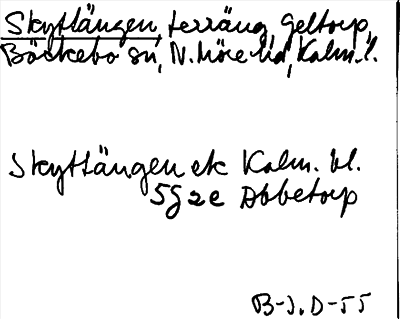 Skyttängen, terräng, Geltorp,
Bäckebo sn, N. Möre hd, Kalm. l.
Skyttängen ek Kalm. bl.
5G 2e Abbetorp
B-J. D-55